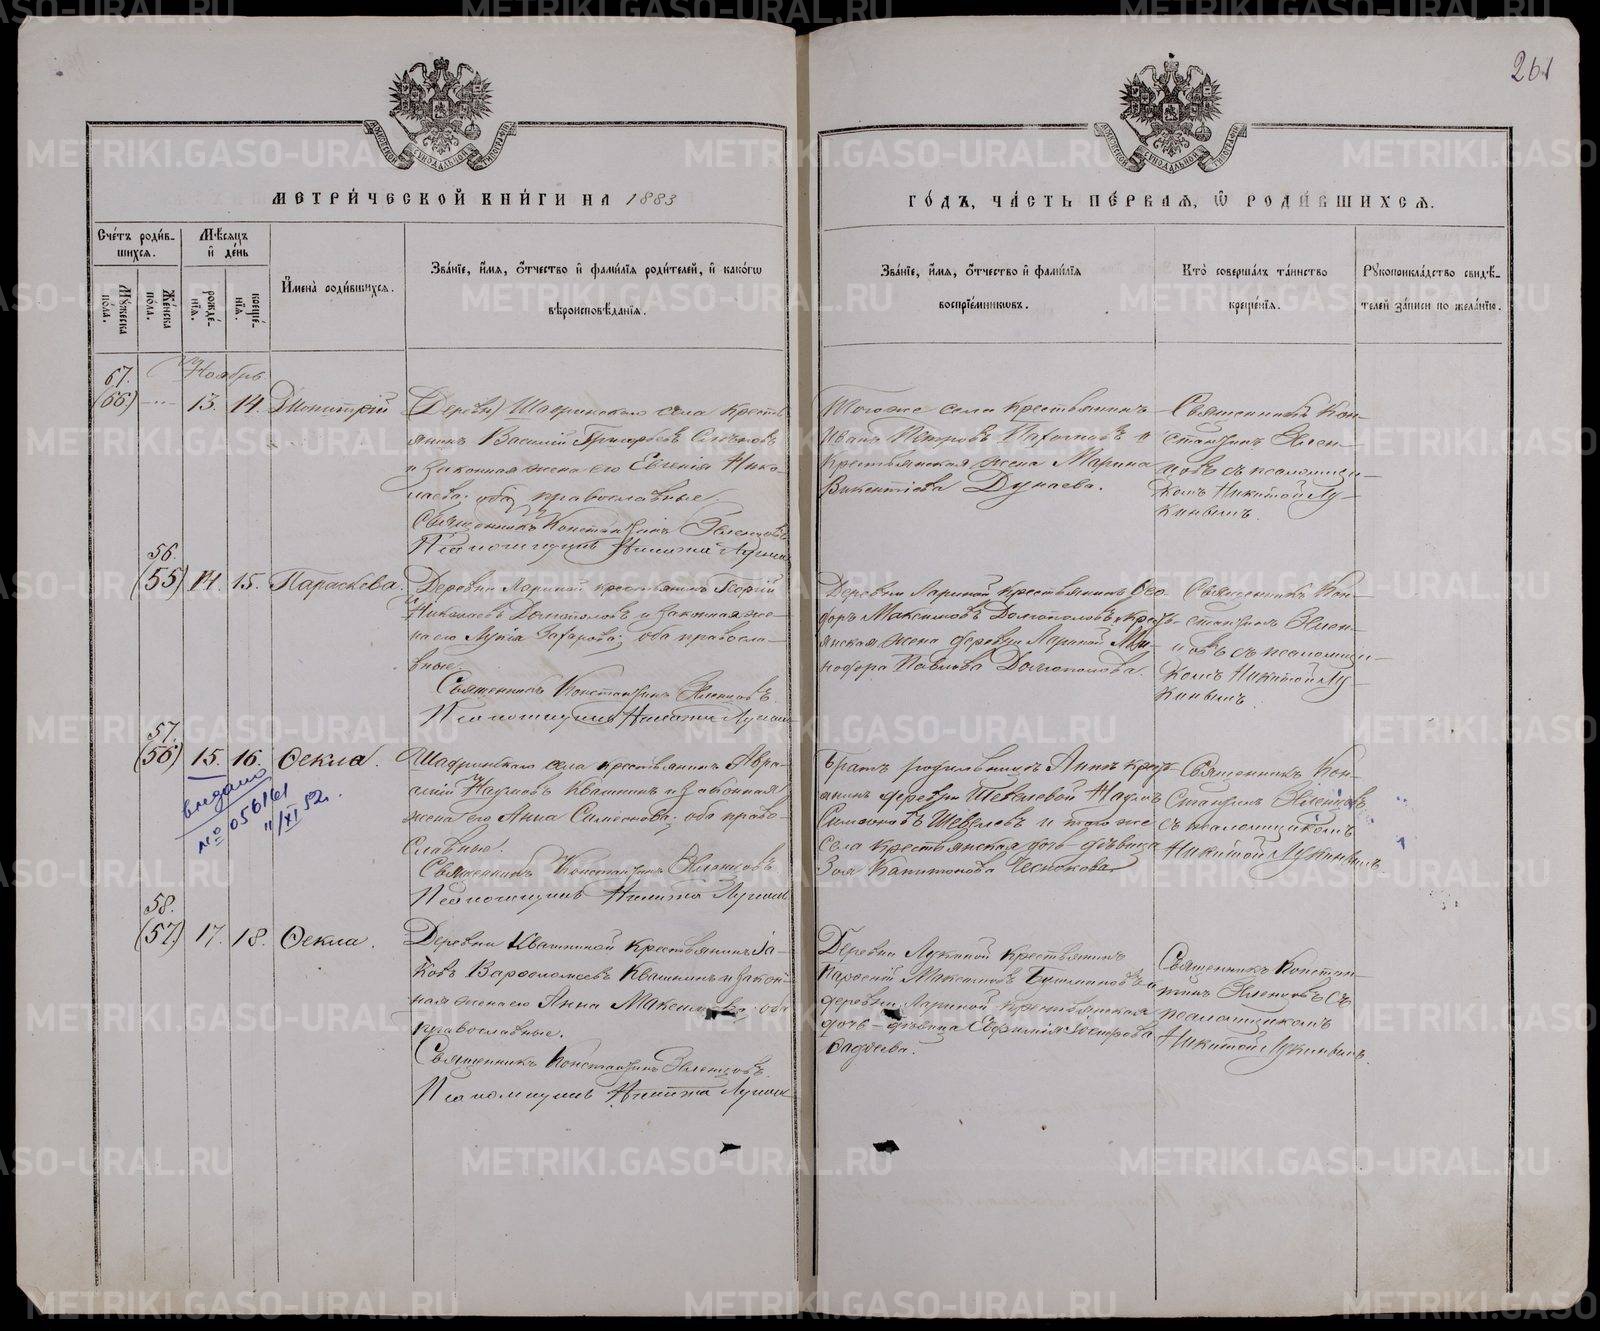 261
МЕТРИ́ЧЕСКОЙ КНИ́ГИ НА 1883
ГО́ДЪ, ЧА́СТЬ ПЕ́РВАЯ, Ѽ РОДИ́ВШИХСЯ.
Сче́тъ роди́в-
шихся.
Мѣ́сяцъ
и҆ де́нь
Му́жеска по́ла.
Же́нска по́ла.
рожде́-
нїя.
креще́-
нїя.
И҆мена̀ роди́вшихся.
Зва́нїе, и҆́мя, ѻ҆́тчество и҆ фами́лїя роди́телей, и҆ како́гѡ
вѣроисповѣ́данїя.
Зва́нїе, и҆́мя, ѻ҆́тчество и҆ фами́лїя
воспрїе́мниковъ.
Кто̀ соверша́лъ та́инство
креще́нїя.
Рꙋкоприкла́дство свидѣ́-
телей за́писи по жела́нїю.
Ноябрь
67.
(66) 13. 14. Димитрій
(Деревн) Шадринскаго села кресть-
янинъ Василій Григорьевъ
и законная жена его Евгенія Нико-
лаева; оба православные.
Священникъ Константинъ
Псаломщикъ Никита Лукин
Тогоже села крестьянинъ
Иванъ Петровъ Пахомовъ и
крестьянская жена Марина
Викентіева Дунаева.
Священникъ Кон-
стантинъ
съ псаломщи-
комъ Никитой Лу-
кинымъ.
56.
(55) 14. 15. Параскева.
Деревни Лариной крестьянинъ Георгій
Николаевъ Долгополовъ и законная же-
на его Лукія Захарова; оба правосла-
вные.
Священникъ Константинъ
Псаломщикъ Никита Лукин
Деревни Лариной крестьянинъ Ѳео-
доръ Максимовъ Долгополовъ и кресть-
янская жена деревни Лариной Ми-
нодора Павлова Долгополова.
Священникъ Кон-
стантинъ
съ псаломщи-
комъ Никитой Лу-
кинымъ.
57.
(56) 15. 16. Ѳекла.
выдано
№ 056161
11/XI 52г.
Шадринскаго села крестьянинъ Авра-
амій Наумовъ Квашнинъ и законная
жена его Анна Симеонова; оба право-
славные.
Священникъ Константинъ
Псаломщикъ Никита Лукин
Братъ родильницы Анны крест-
янинъ деревни Шевелевой Наумъ
Симеоновъ Шевелевъ и тогоже
села крестьянская дочь-дѣвица
Зоя Капитонова Чеснокова.
Священникъ Кон-
стантинъ
съ псаломщикомъ
Никитой Лукинымъ.
58.
(57) 17. 18. Ѳекла.
Деревни Квашниной крестьянинъ Іа-
ковъ Варфоломеевъ Квашнинъ и закон-
ная жена его Анна Максимова; оба
православные.
Священникъ Константинъ
Псаломщикъ Никита Лукин
Деревни Лукиной крестьянинъ
Максимовъ
деревни Лариной крестьянская
дочь-дѣвица Евфимія
Ѳадѣева.
Священникъ Констан-
тинъ съ
псаломщикомъ
Никитой Лукинымъ.